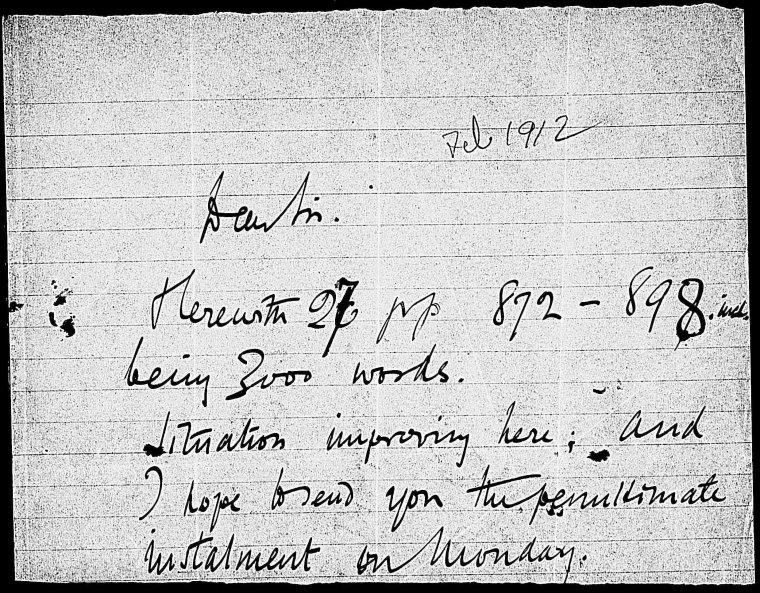 Feb 1912
Dear Sir.
Herewith 27 pp 872 – 898. incl.
being 3000 words.
Situation improving here; and
I hope to send you the penultimate
instalment on Monday.